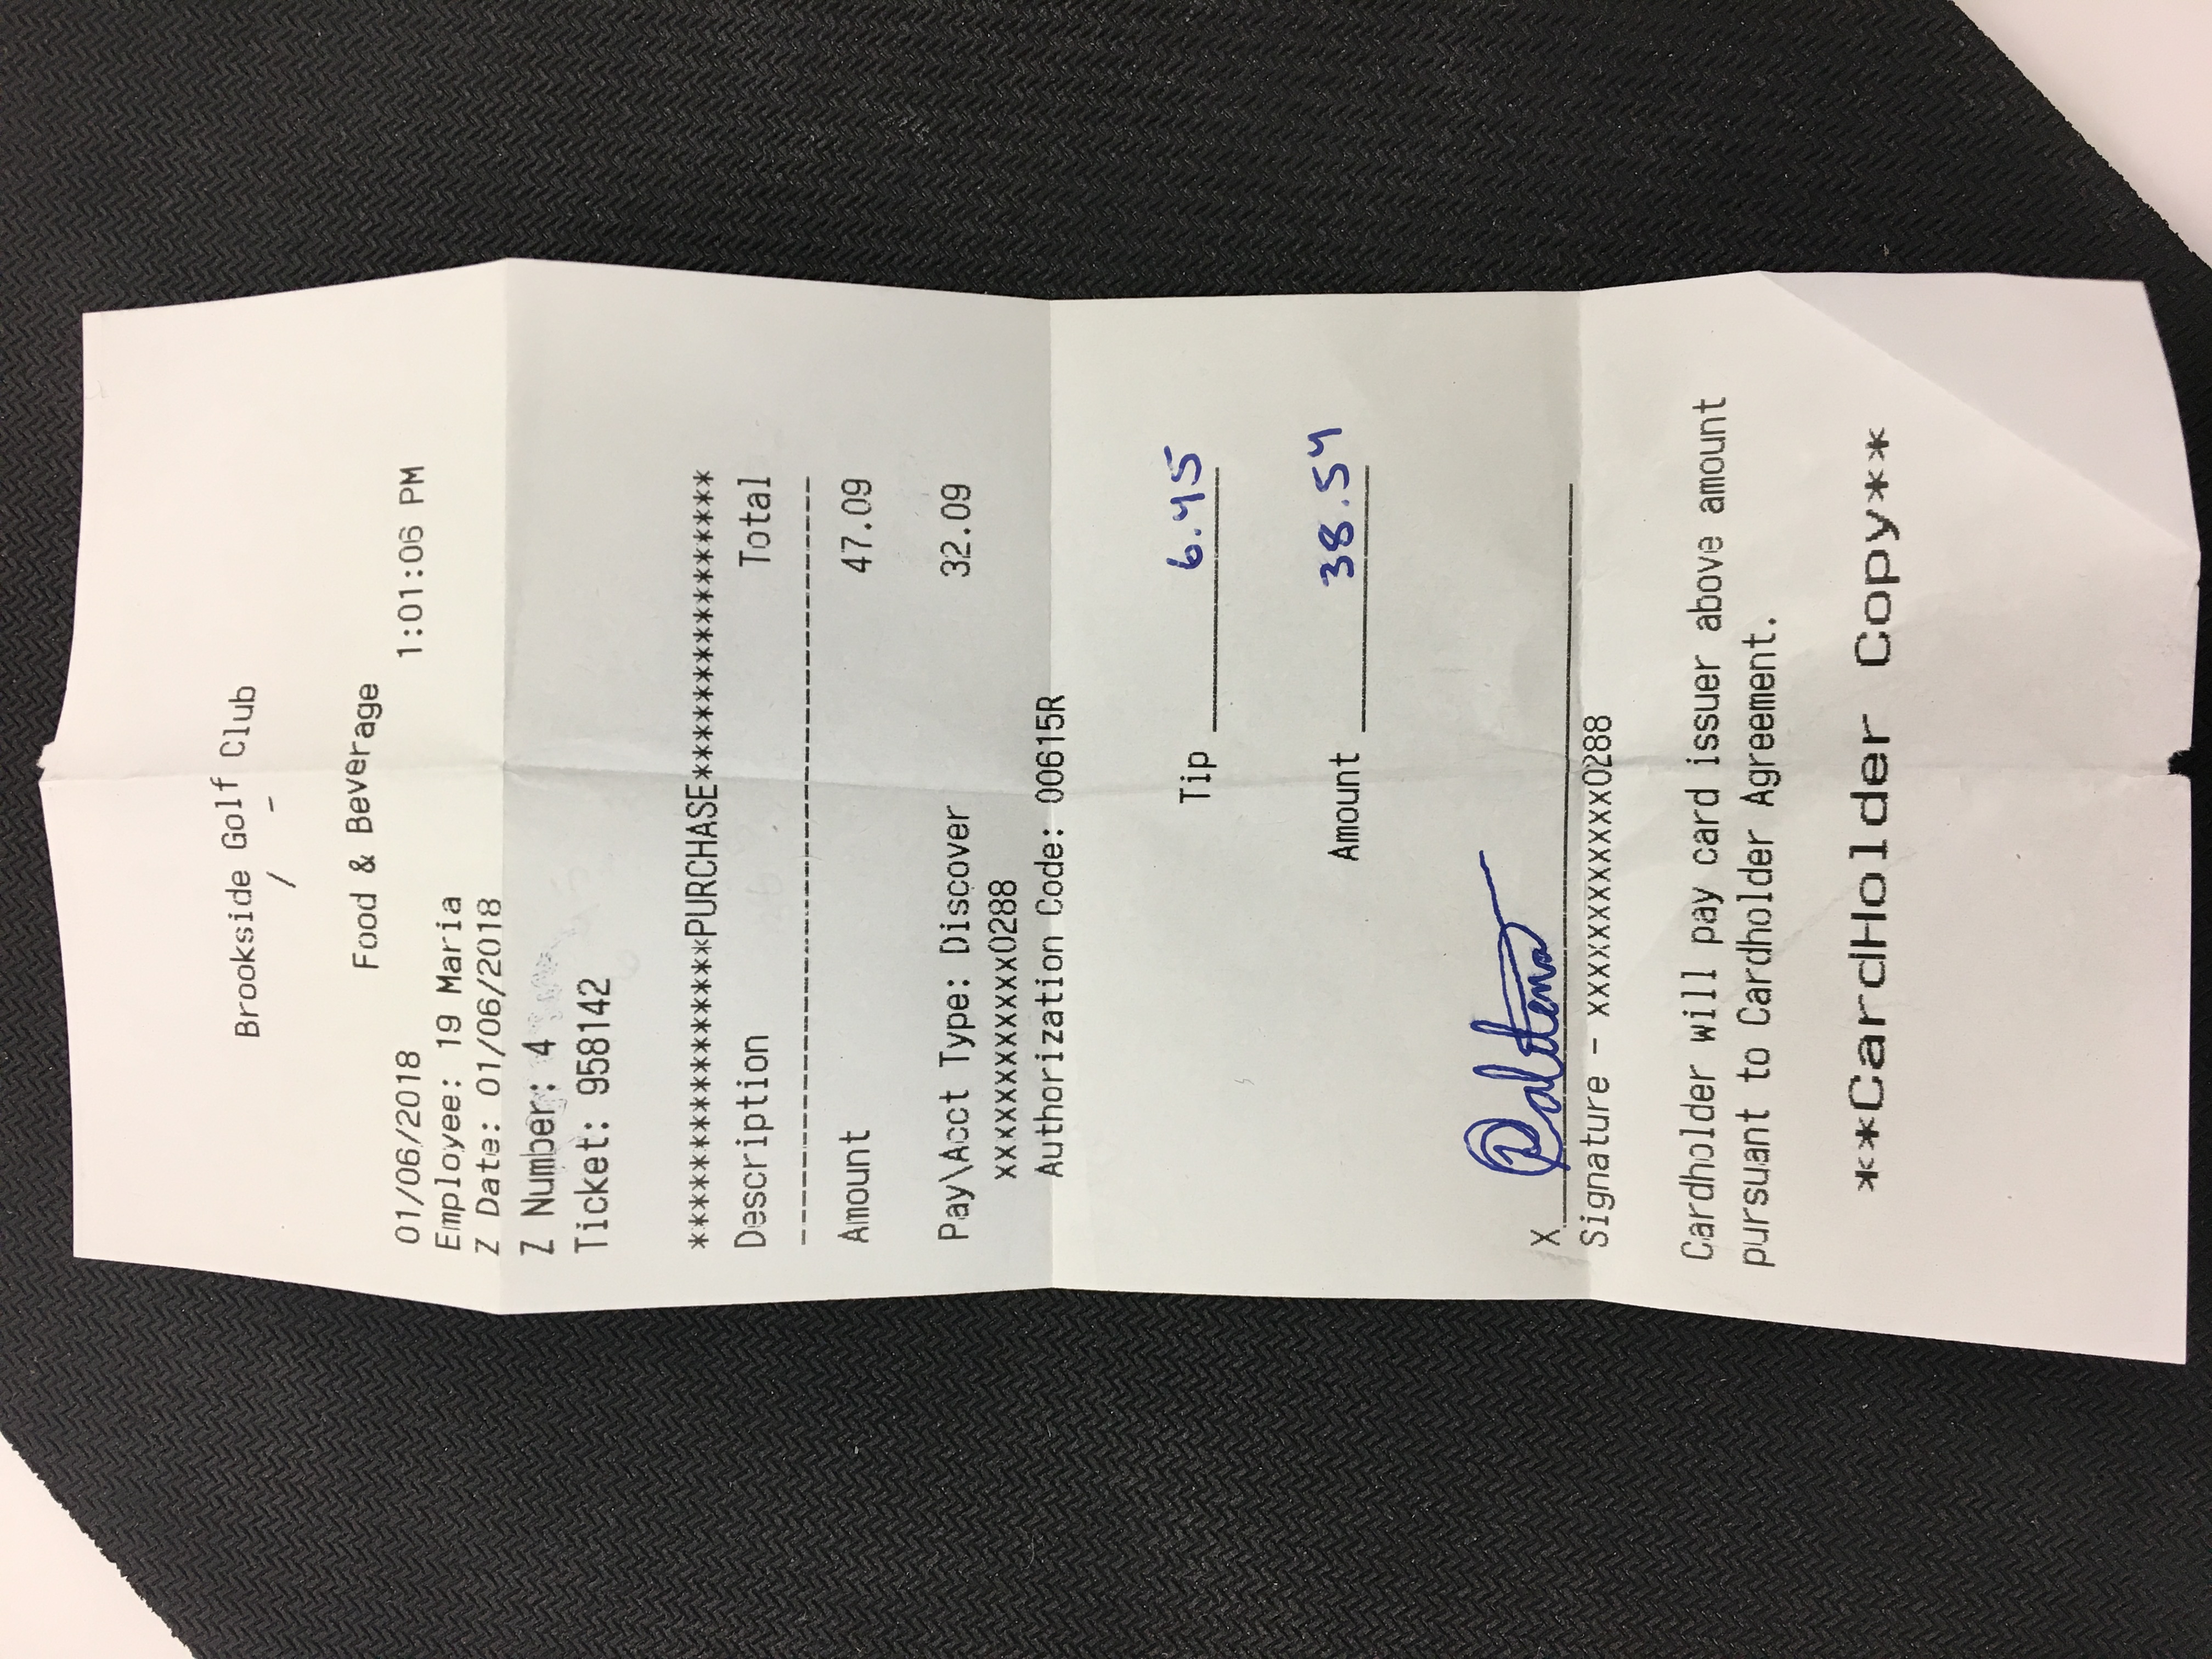 Brookside Golf Club
/ -
Food & Beverage
01/06/2018 1:01:06 PM
Employee: 19 Maria
Z Date: 01/06/2018
Z Number: 4
Ticket: 958142
****************PURCHASE****************
Description Total
----------------------------------------
Amount 47.09
Pay\Acct Type: Discover 32.09
xxxxxxxxxxxx0288
Authorization Code: 00615R
Tip 6.45
Amount 38.54
X
Signature - xxxxxxxxxxxx0288
Cardholder will pay card issuer above amount
pursuant to Cardholder Agreement.
**CardHolder Copy**